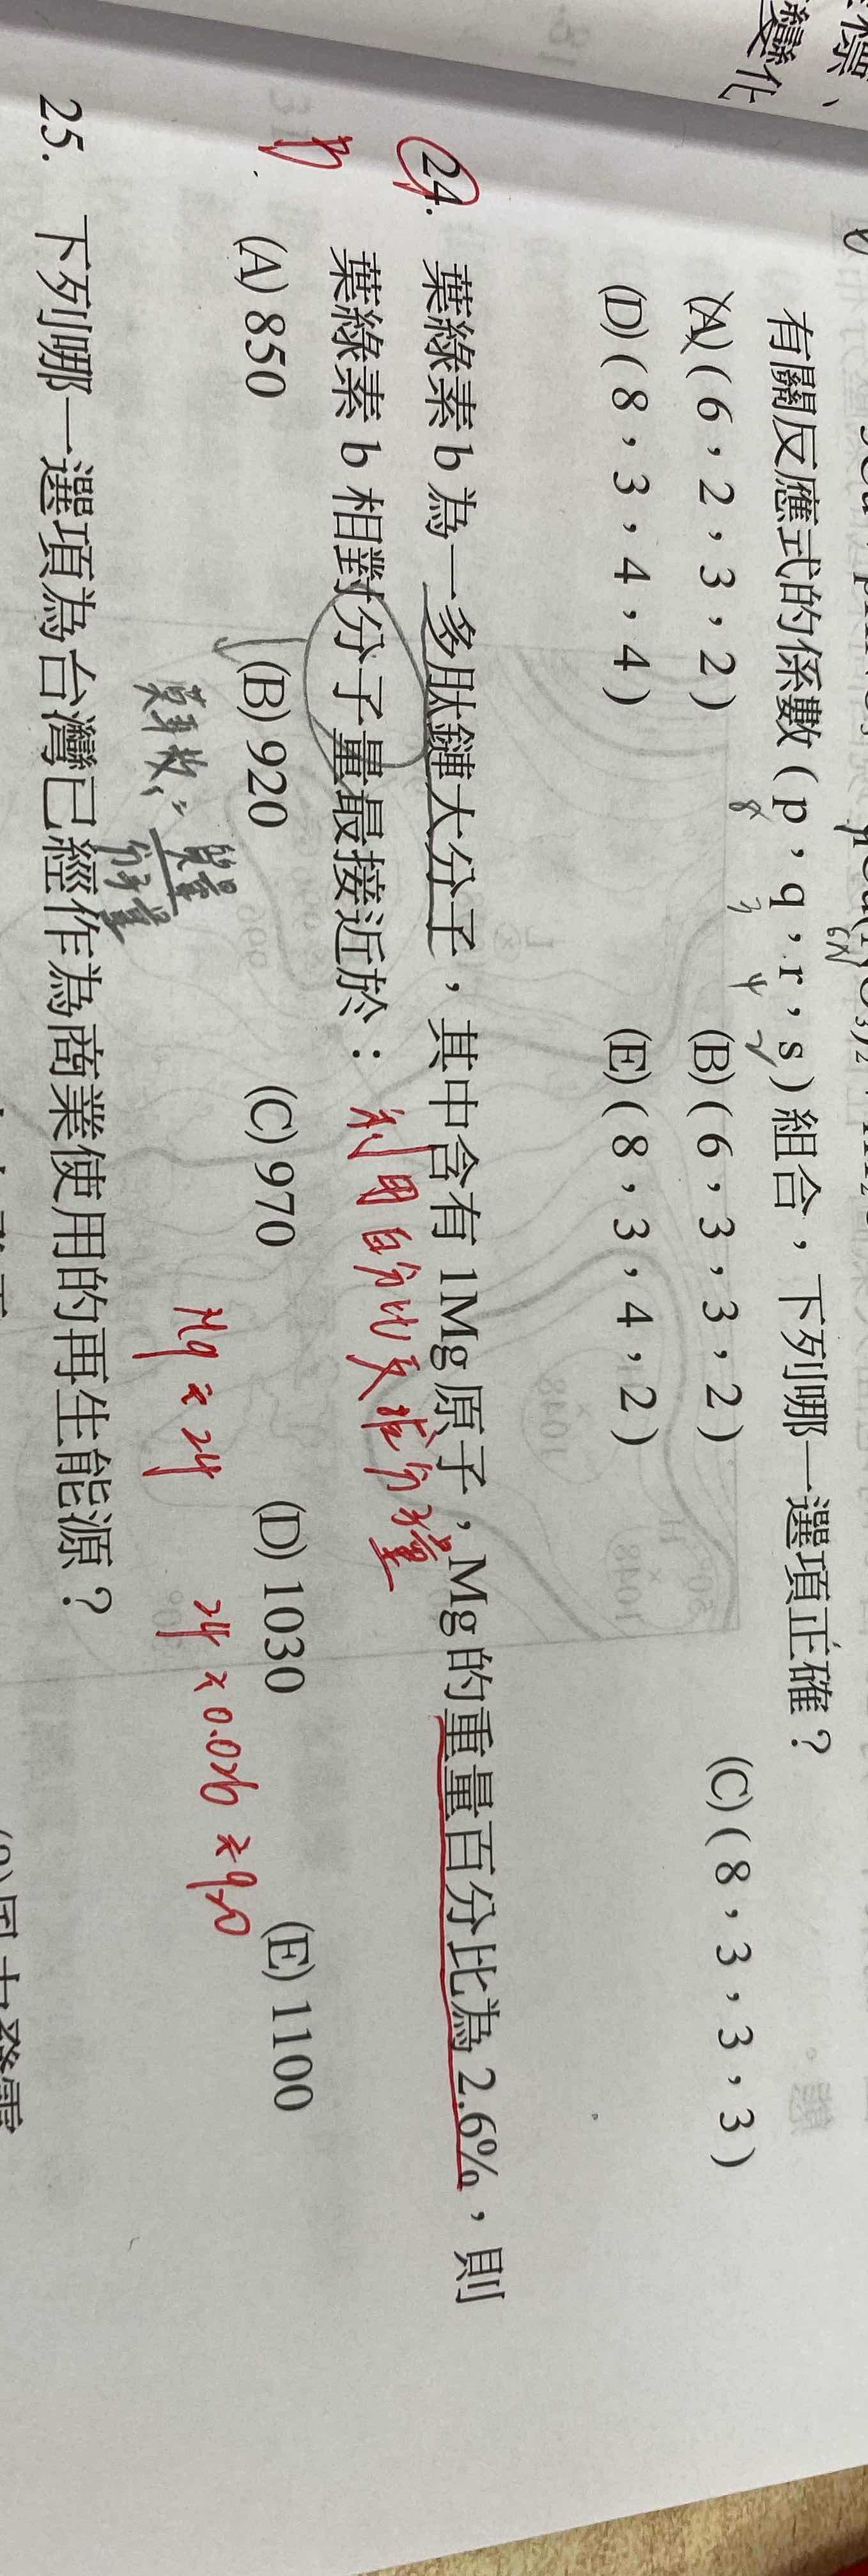 標、
變化
有關反應式的係數(p,q,r,s)組合,下列哪一選項正確?
8 3 4 2
(A)(6,2,3,2) (B)(6,3,3,2) (C)(8,3,3,3)
(D)(8,3,4,4) (E)(8,3,4,2)
24. 葉綠素b為一多肽鏈大分子,其中含有1Mg原子,Mg的重量百分比為2.6%,則
葉綠素b相對分子量最接近於: 利用百分比反推分子量
B (A) 850 (B) 920 (C) 970 (D) 1030 (E) 1100
莫耳數 = 質量 分子量 Mg ≈ 24 24 × 0.026 ≈ 920
25. 下列哪一選項為台灣已經作為商業使用的再生能源?